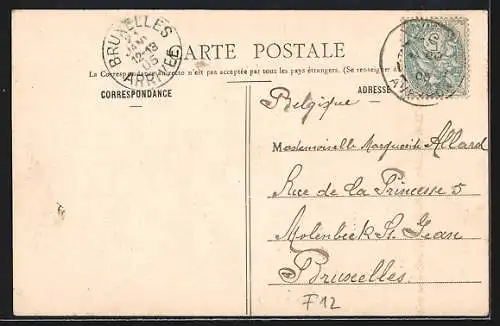 BRUXELLES
JANV
12-13
05
ARRIVÉE
CARTE POSTALE
La Correspondance au recto n'est pas acceptée par tous les pays étrangers. (Se renseigner à
CORRESPONDANCE
ADRESSE
Belgique
Mademoiselle Marguerite Allard
Rue de la Princesse 5
Molenbeek St. Jean
Bruxelles
F12